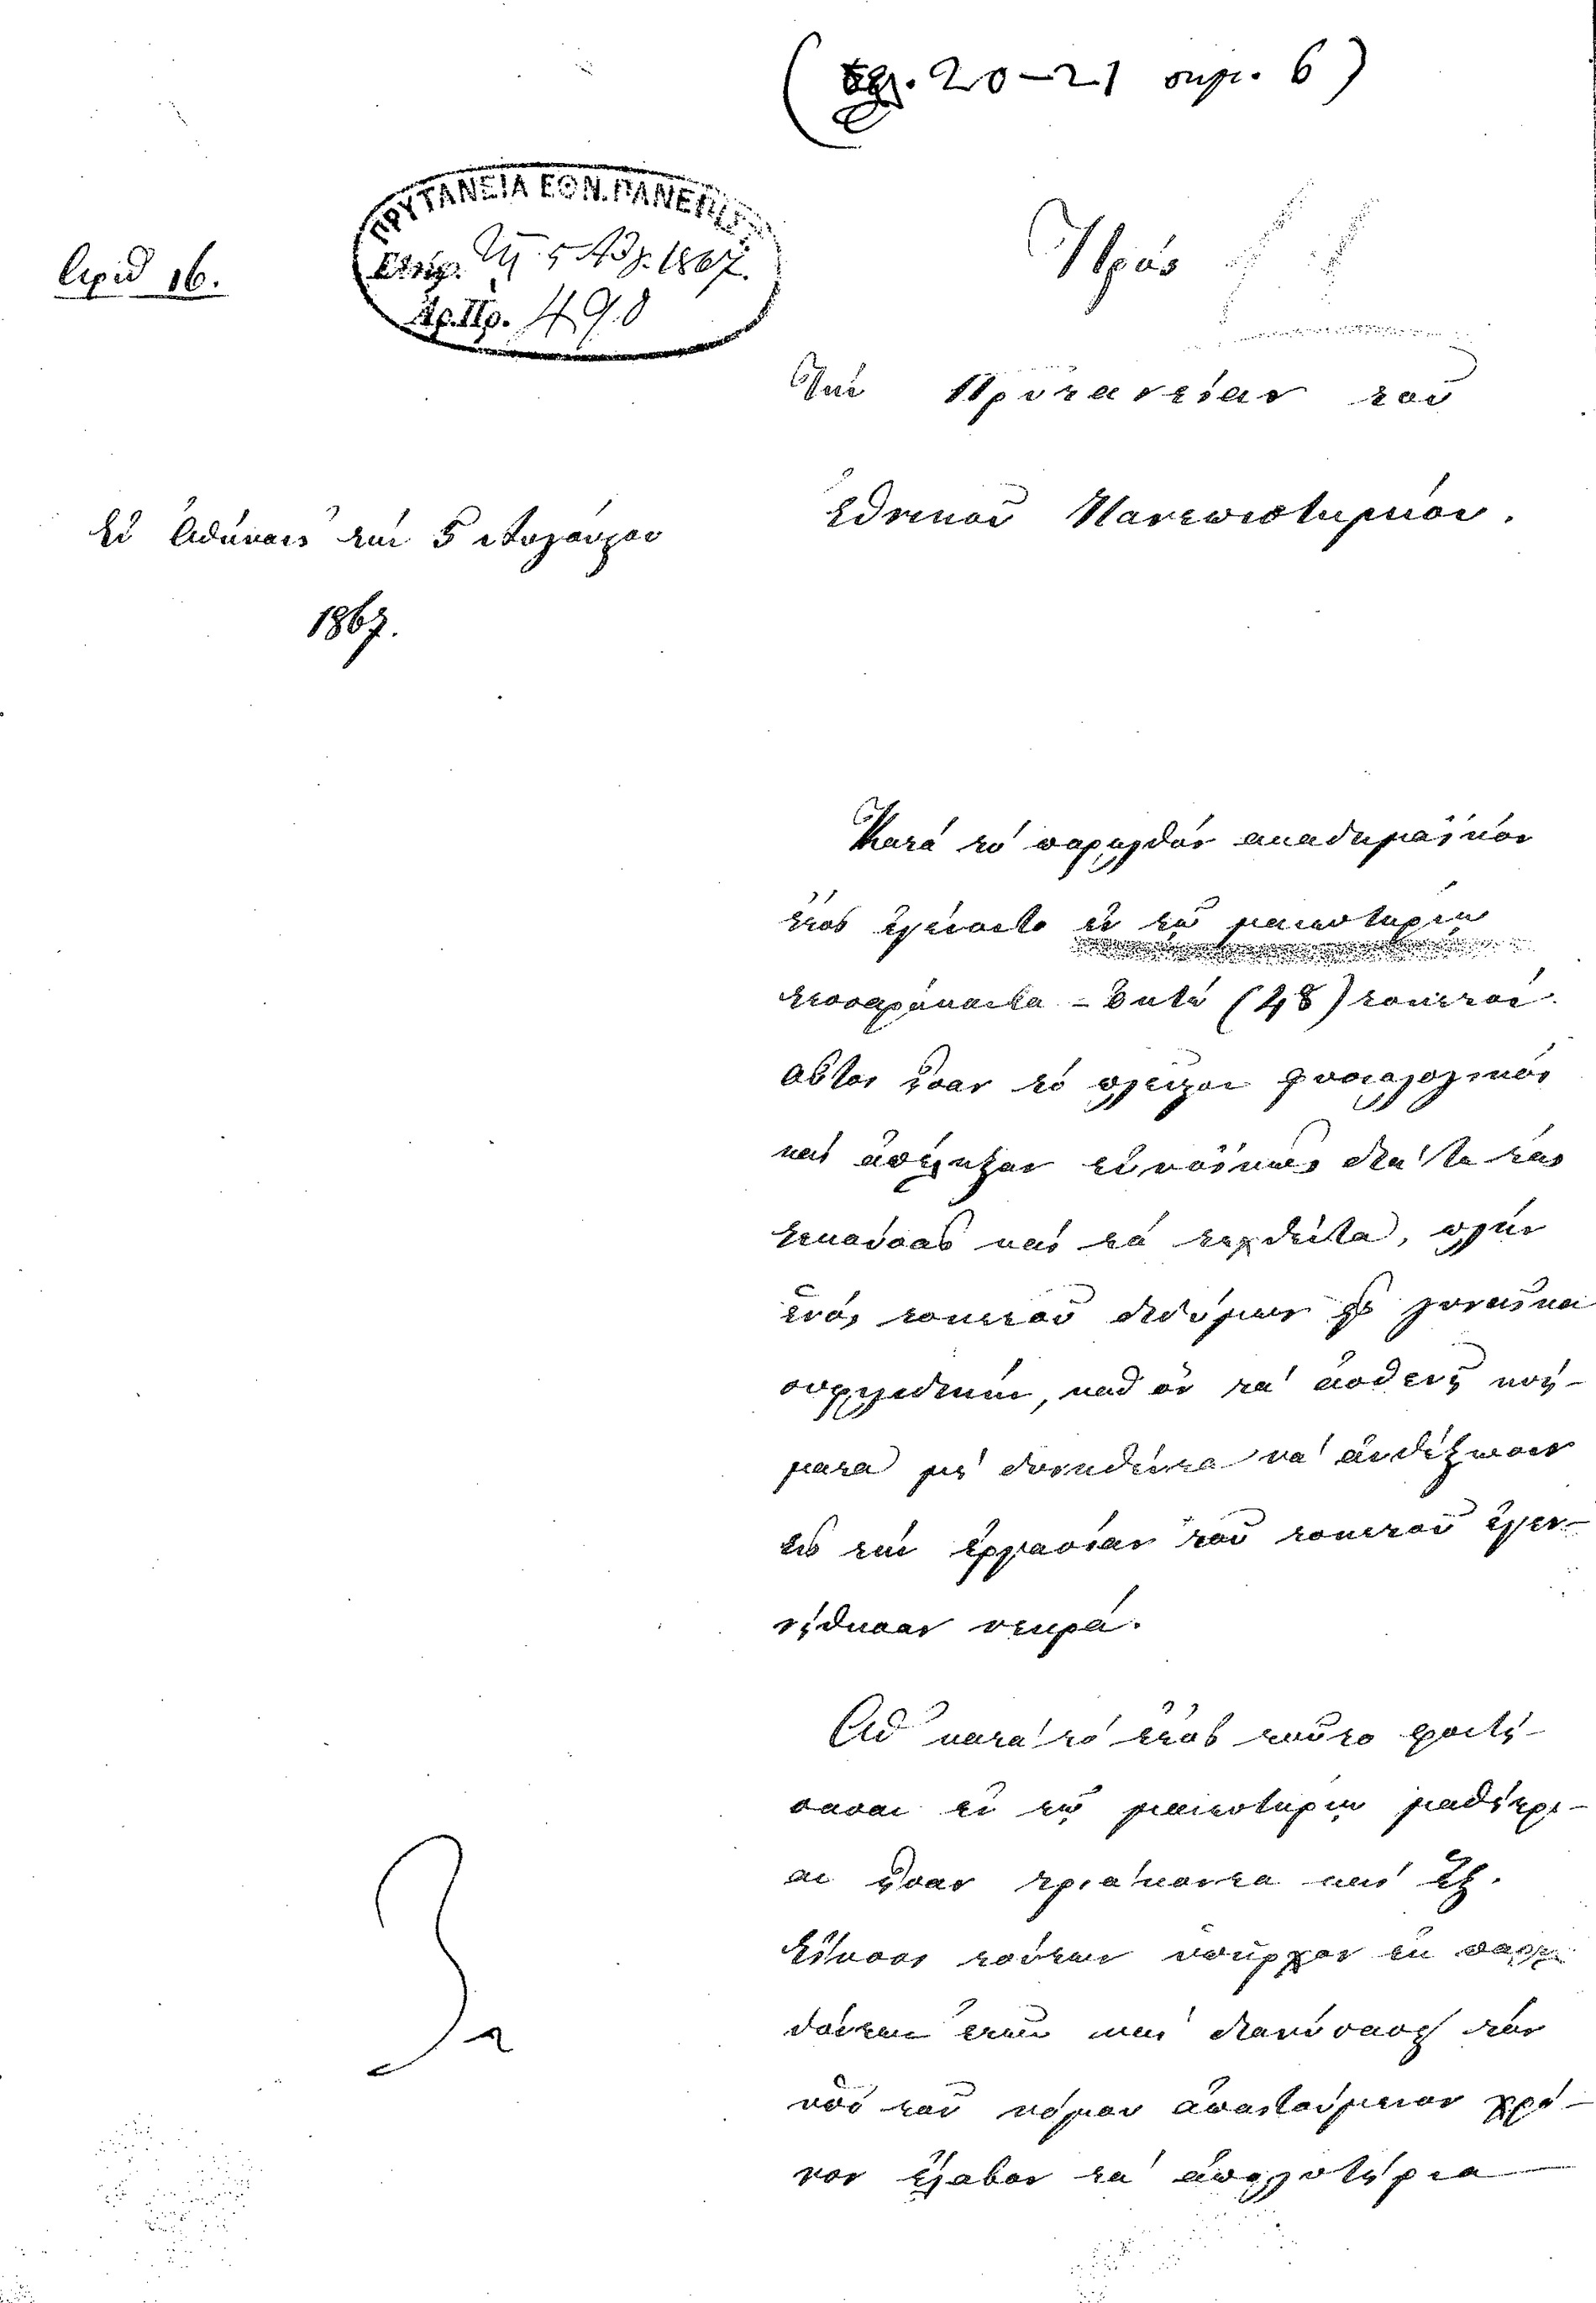 (σελ. 20-21 σημ. 6)
ΠΡΥΤΑΝΕΙΑ ΕΘΝ. ΠΑΝΕΠΙΣΤ.
τῇ 5 Αὐγ. 1867.
Ἀρ. Πρ. 490
Ἀριθ 16.
Πρός
Τήν Πρυτανείαν τοῦ
Ἐθνικοῦ Πανεπιστημίου.
Ἐν Ἀθήναις τήν 5 Αὐγούστου
1867.
Κατά τό παρελθόν ακαδημαϊκόν
ἔτος ἐγένοντο ἐν τῷ μαιευτηρίῳ
τεσσαράκοντα-ὀκτώ (48) τοκετοί.
Οὗτοι ἦσαν τό πλεῖστον φυσιολογικοί
καί ἀπέληξαν εὐνοϊκῶς διά τε τάς
τεκούσας καί τά τεχθέντα, πλήν
ἑνός τοκετοῦ διδύμων εἰς γυναῖκα
συφιλιδικήν, καθ' ὅν τά ἀσθενῆ κυή-
ματα μή δυνηθέντα νά ἀνθέξωσιν
εἰς τήν ἐργασίαν τοῦ τοκετοῦ ἐγεν-
νήθησαν νεκρά.
Αἱ κατά τό ἔτος τοῦτο φοιτή-
σασαι ἐν τῷ μαιευτηρίῳ μαθήτρι-
αι ἦσαν τριάκοντα καί ἕξ.
Εἴκοσι τούτων ὑπῆρχον ἐκ παρελ-
θόντων ἐτῶν καί διανύσασαι τόν
ὑπό τοῦ νόμου ἀπαιτούμενον χρό-
νον ἔλαβον τά ἀπολυτήρια